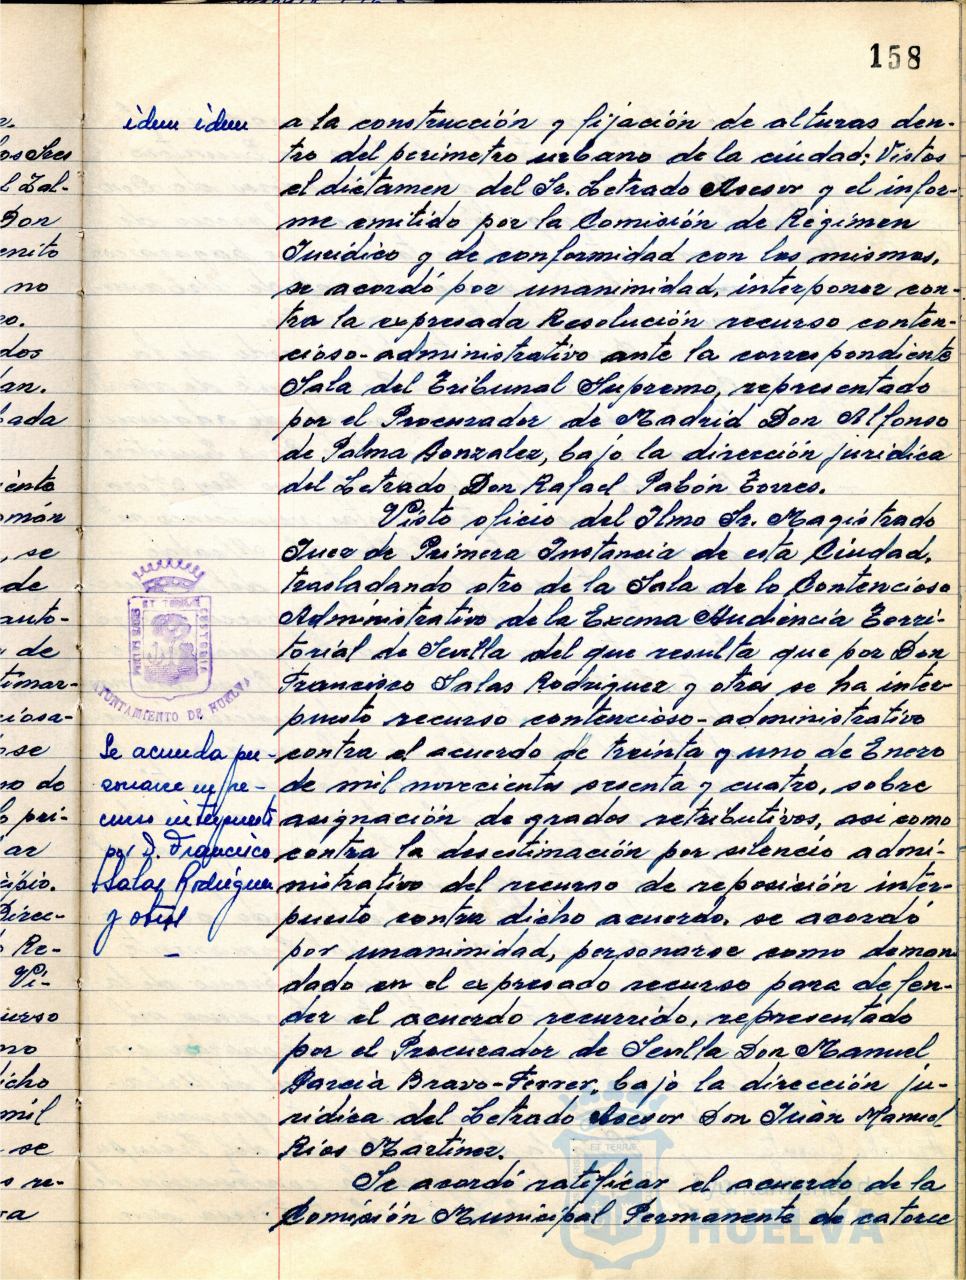 158
idem idem
a la construcción y fijación de alturas den-
tro del perímetro urbano de la ciudad; Vistos
el dictamen del Sr. Letrado Asesor y el infor-
me emitido por la Comisión de Régimen
Jurídico y de conformidad con los mismos,
se acordó por unanimidad, interponer con-
tra la expresada Resolución recurso conten-
cioso-administrativo ante la correspondiente
Sala del Tribunal Supremo, representado
por el Procurador de Madrid Don Alfonso
de Palma Gonzalez, bajo la dirección jurídica
del Letrado Don Rafael Pabón Torres.
Visto oficio del Ilmo Sr. Magistrado
Juez de Primera Instancia de esta Ciudad,
trasladando otro de la Sala de lo Contencioso
Administrativo de la Excma Audiencia Terri-
torial de Sevilla del que resulta que por Don
Francisco Salas Rodriguez y otros se ha inter-
puesto recurso contencioso-administrativo
contra el acuerdo de treinta y uno de Enero
de mil novecientos sesenta y cuatro, sobre
asignación de grados retributivos, asi como
contra la desestimación por silencio admi-
nistrativo del recurso de reposición inter-
puesto contra dicho acuerdo, se acordó
por unanimidad, personarse como deman
dado en el expresado recurso para defen-
der el acuerdo recurrido, representado
por el Procurador de Sevilla Don Manuel
García Bravo-Ferrer, bajo la dirección ju-
rídica del Letrado Asesor Don Juan Manuel
Rios Martinez.
Se acordó ratificar el acuerdo de la
Comisión Municipal Permanente de catorce
AYUNTAMIENTO DE HUELVA
Se acuerda per-
sonarse en re-
curso interpuesto
por D. Francisco
Salas Rodriguez
y otros
HUELVA